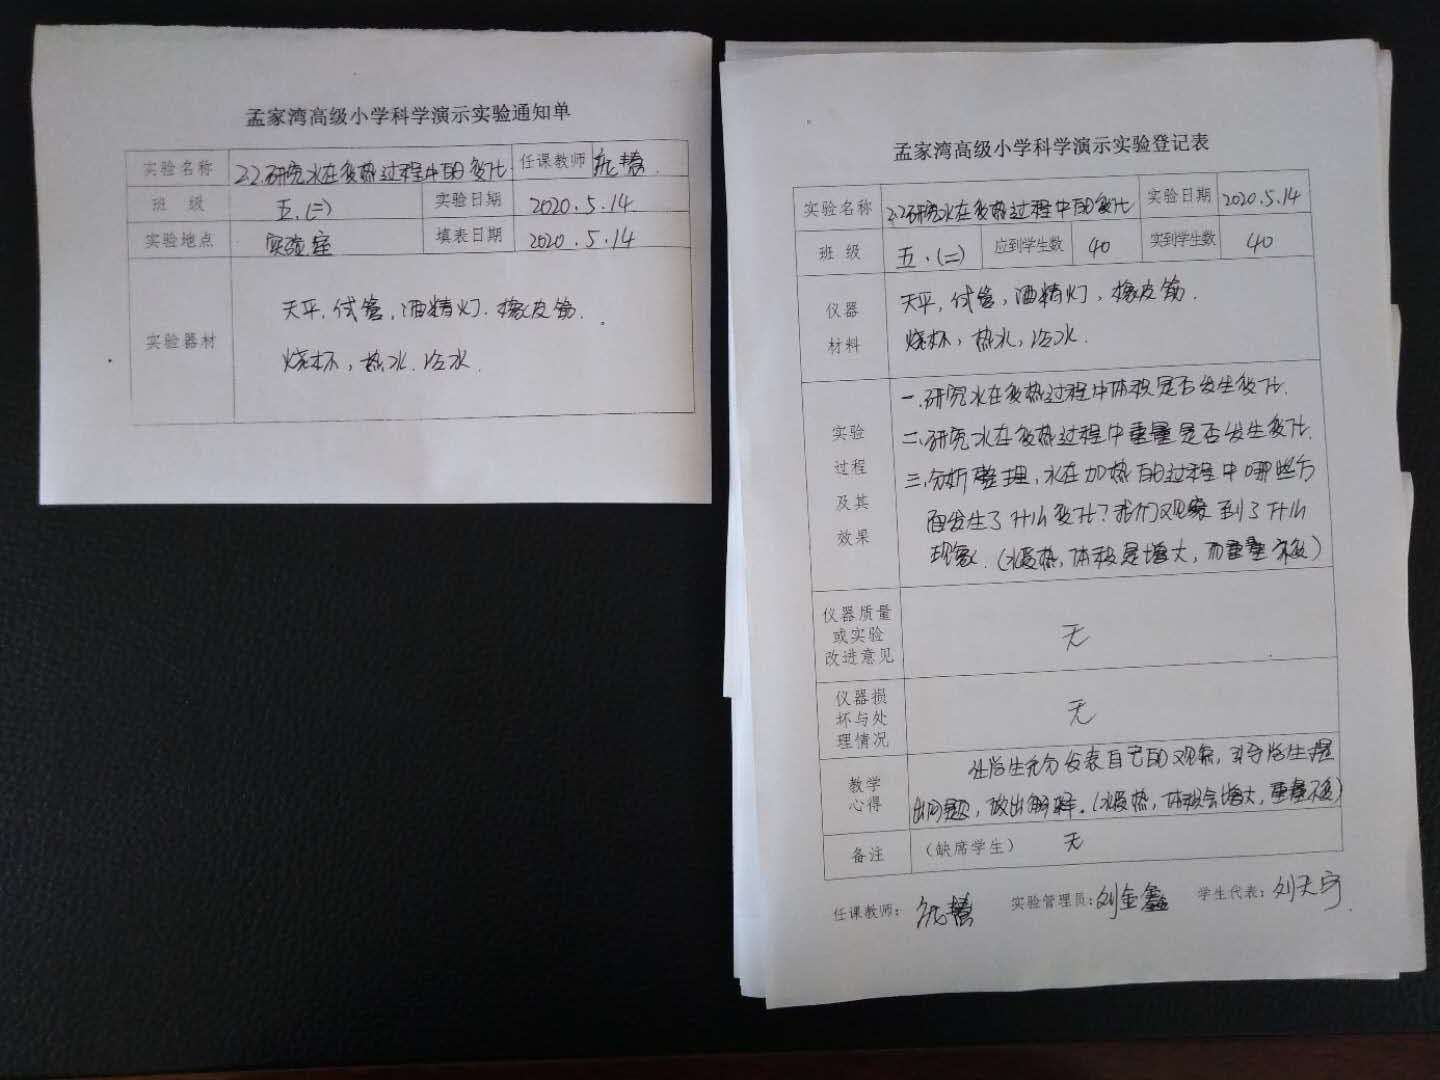 孟家湾高级小学科学演示实验通知单
实验名称 2.2.研究水在变热过程中的变化 任课教师
班 级 五.(二) 实验日期 2020.5.14
实验地点 实验室 填表日期 2020.5.14
实验器材
天平,试管,酒精灯.橡皮筋.
烧杯,热水.冷水.
孟家湾高级小学科学演示实验登记表
实验名称 2.2研究水在变热过程中的变化 实验日期 2020.5.14
班 级 五.(二) 应到学生数 40 实到学生数 40
仪器
材料
天平,试管,酒精灯,橡皮筋.
烧杯,热水,冷水.
实验
过程
及其
效果
一.研究水在变热过程中体积是否发生变化.
二.研究水在变热过程中重量是否发生变化.
三.分析整理,水在加热的过程中哪些方
面发生了什么变化?我们观察到了什么
现象.(水变热,体积是增大,而重量不变)
仪器质量
或实验
改进意见
无
仪器损
坏与处
理情况
无
教学
心得
让学生充分发表自己的观点,引导学生提
出问题,做出解释.(水变热,体积会增大,重量不变)
备注 (缺席学生) 无
任课教师: 实验管理员:刘金鑫 学生代表:刘天宇